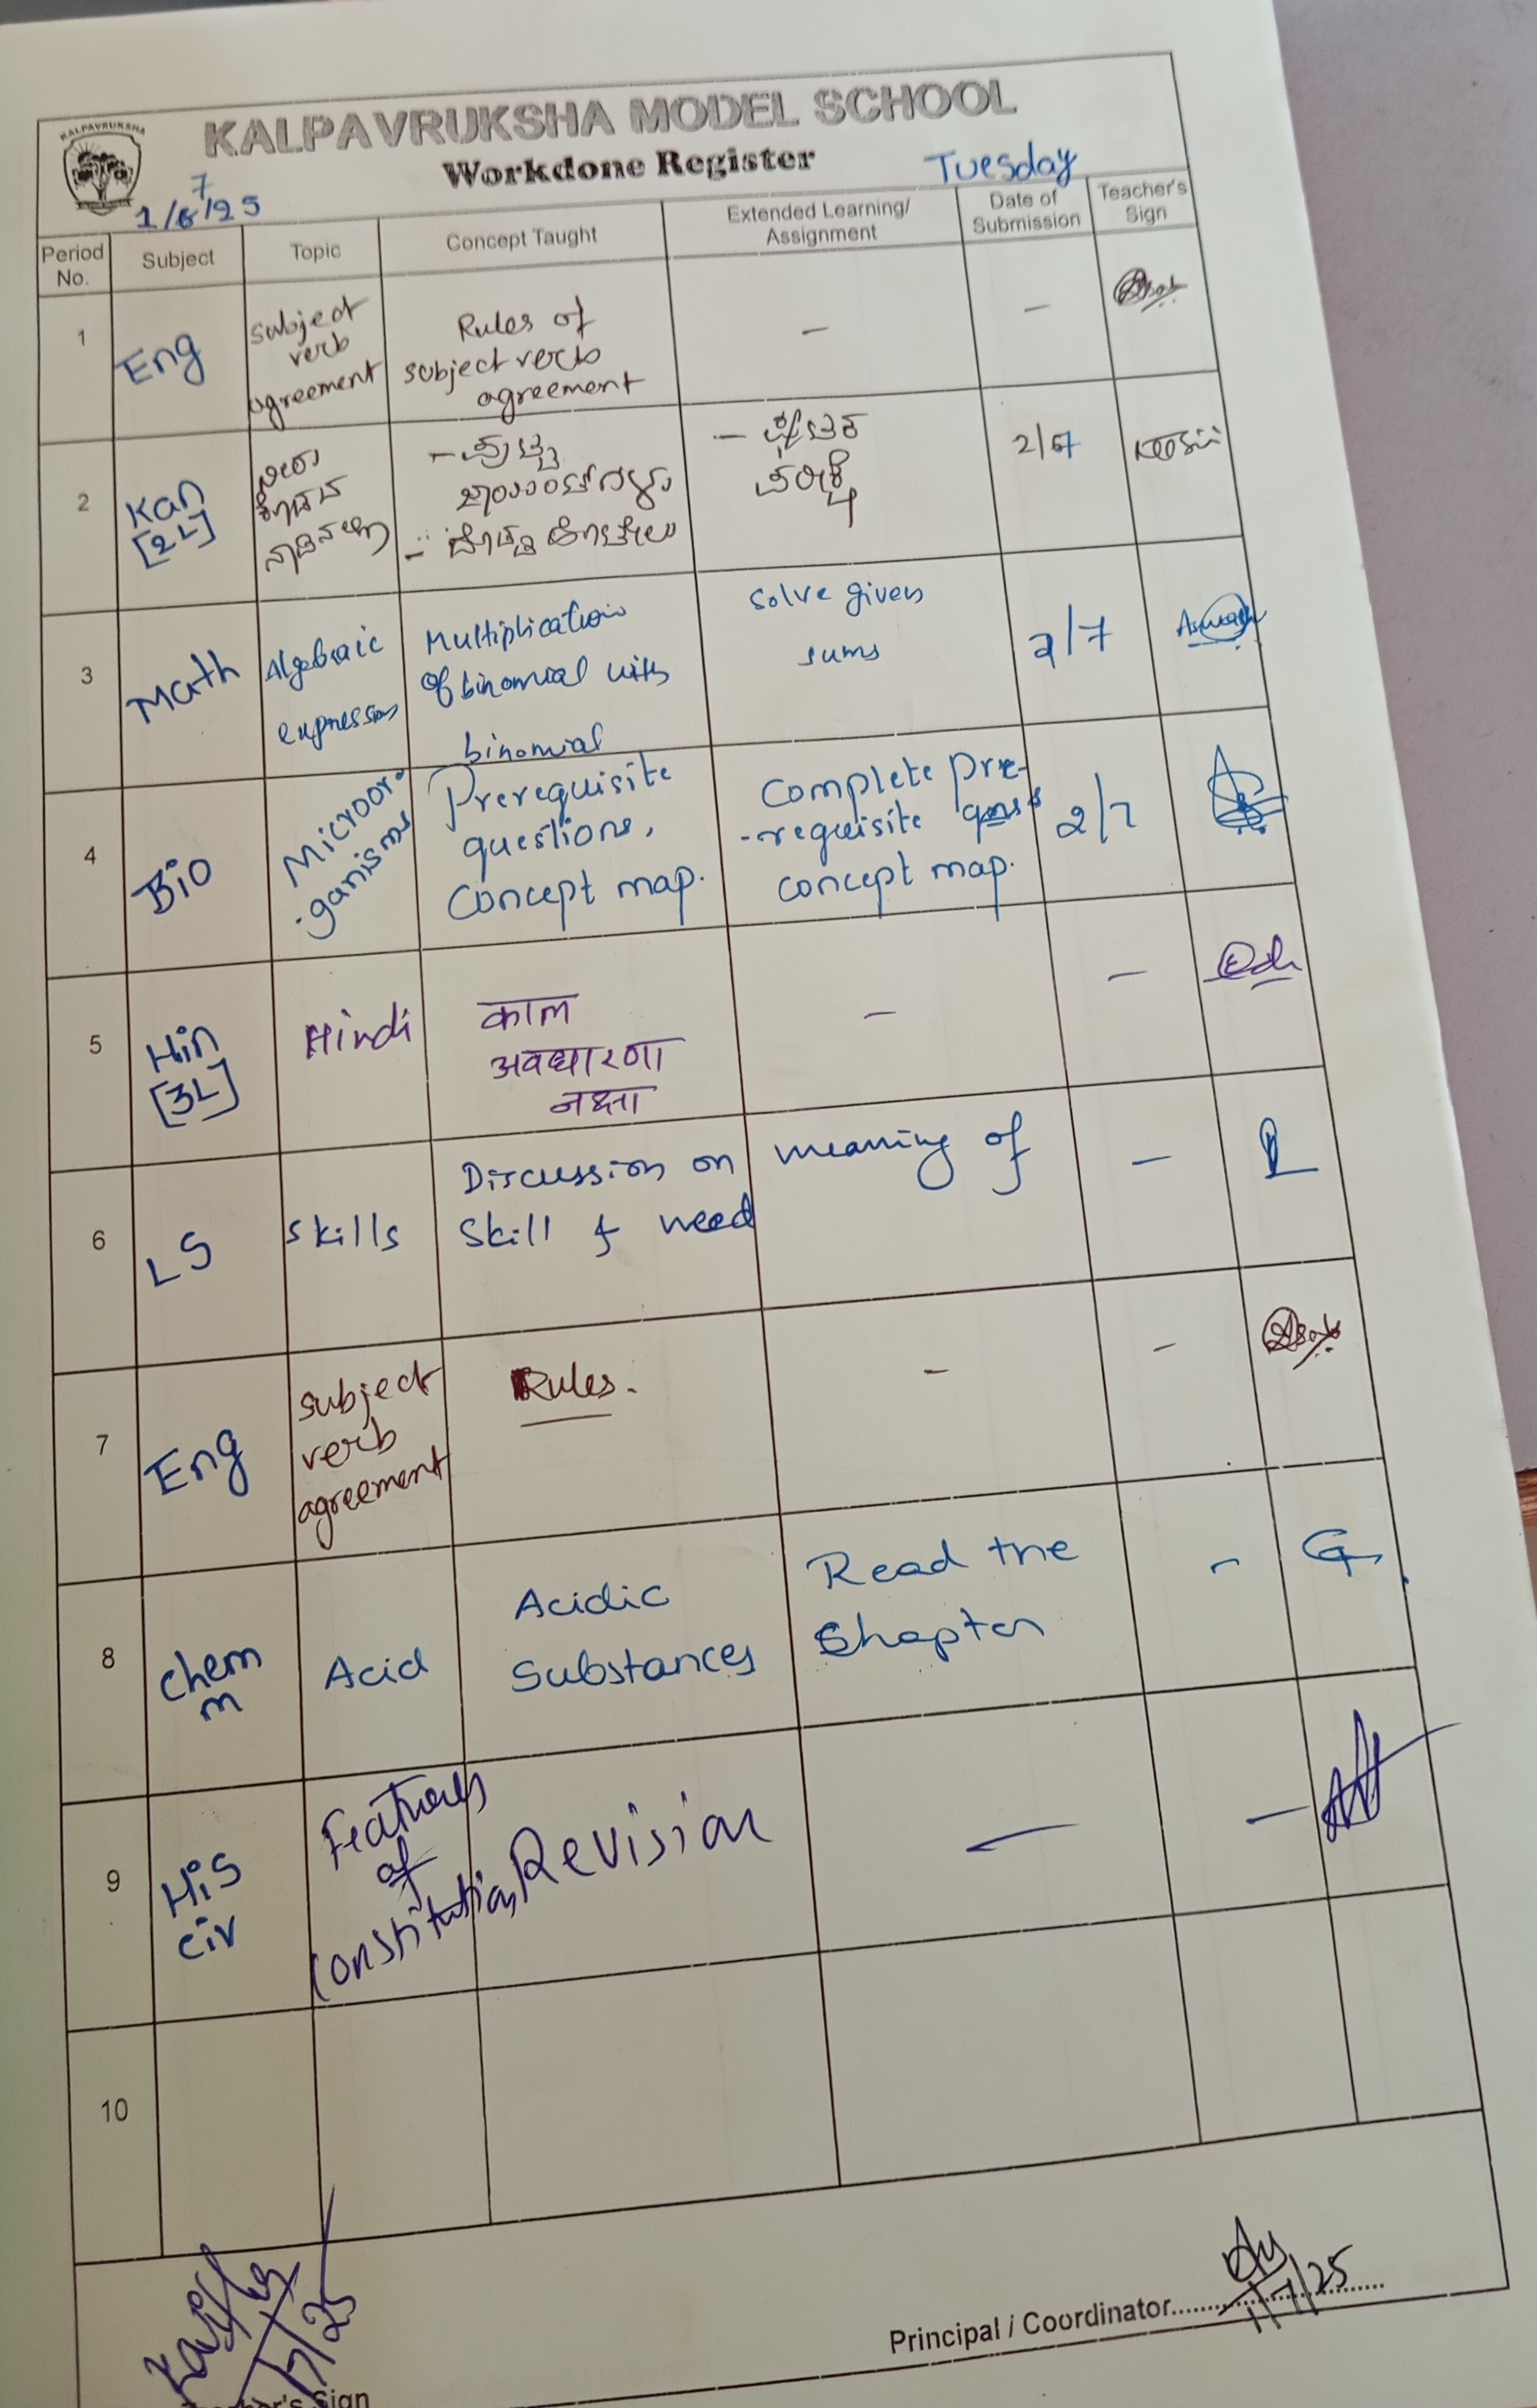 KALPAVRUKSHA
KALPAVRUKSHA MODEL SCHOOL
Workdone Register
Tuesday
7
1/6/25
Period No.
Subject
Topic
Concept Taught
Extended Learning/ Assignment
Date of Submission
Teacher's Sign
1
Eng
subject
verb
agreement
Rules of
subject verb
agreement
–
–
2
Kan
[2L]
–
–
2/7
3
Math
Algebraic
expression
Multiplication
of binomial with
binomial
Solve given
sums
2/7
4
Bio
Microor-
-ganisms
Prerequisite
questions,
Concept map.
Complete pre-
-requisite
concept map.
2/7
5
Hin
[3L]
Hindi
काल
अवधारणा
नक्शा
–
–
6
LS
Skills
Discussion on meaning of
Skill & need
–
7
Eng
subject
verb
agreement
Rules.
–
–
8
Chem
m
Acid
Acidic
Substances
Read the
Chapter
–
9
His
Civ
Features
of
Constitution
Revision
–
–
10
Principal / Coordinator
1/7/25
Sign